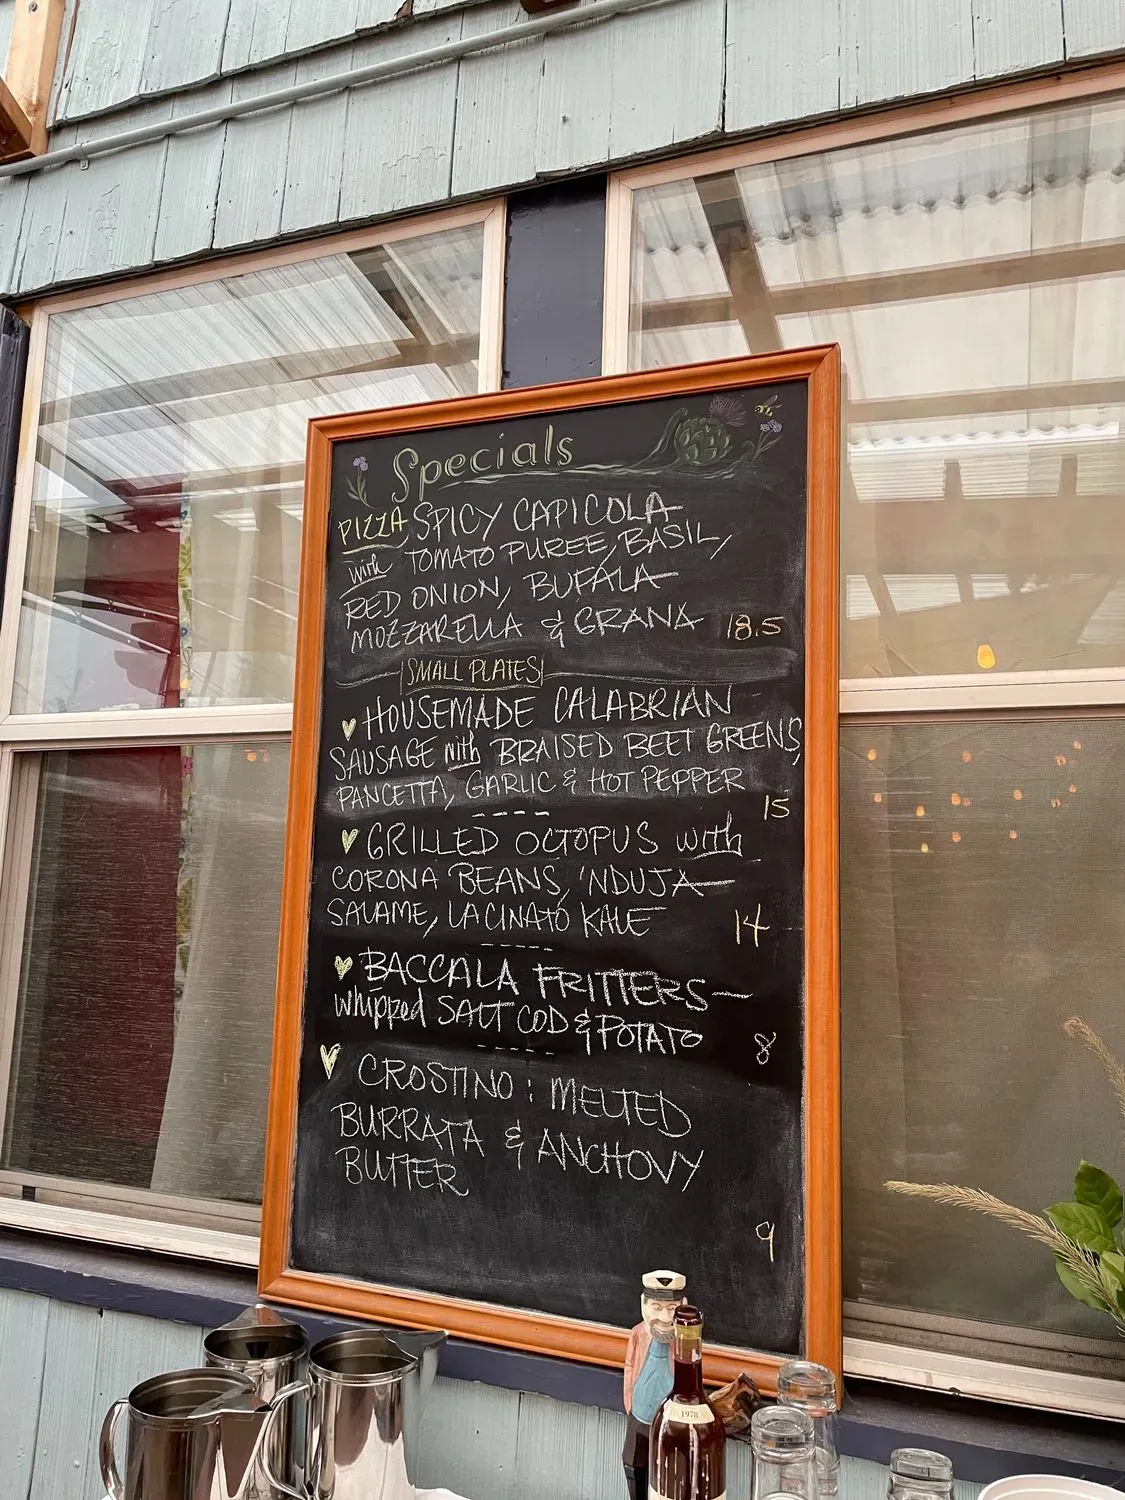 Specials
PIZZA SPICY CAPICOLA
with TOMATO PUREE, BASIL,
RED ONION, BUFALA
MOZZARELLA & GRANA 18.5
SMALL PLATES
HOUSEMADE CALABRIAN
SAUSAGE with BRAISED BEET GREENS,
PANCETTA, GARLIC & HOT PEPPER
15
GRILLED OCTOPUS with
CORONA BEANS, 'NDUJA
SALAME, LACINATO KALE 14
BACCALA FRITTERS—
whipped SALT COD & POTATO 8
CROSTINO: MELTED
BURRATA & ANCHOVY
BUTTER
9
1978